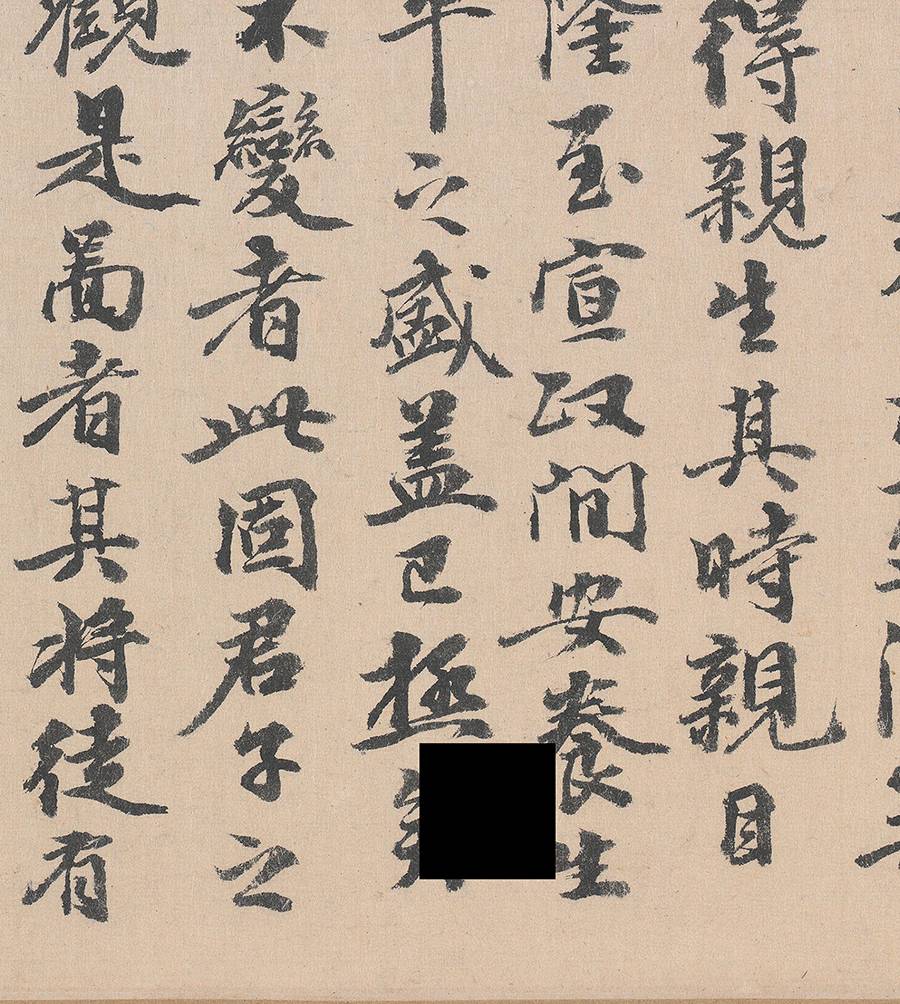 得親生其時親目
隆至宣政間安養生
平之盛蓋已極
不變者此固君子之
觀是啚者其將徒有